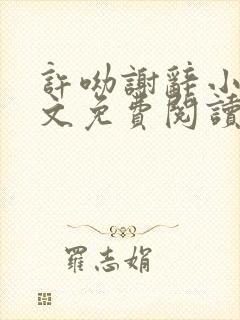 許呦謝辭小
文免費閱讀
羅志娟